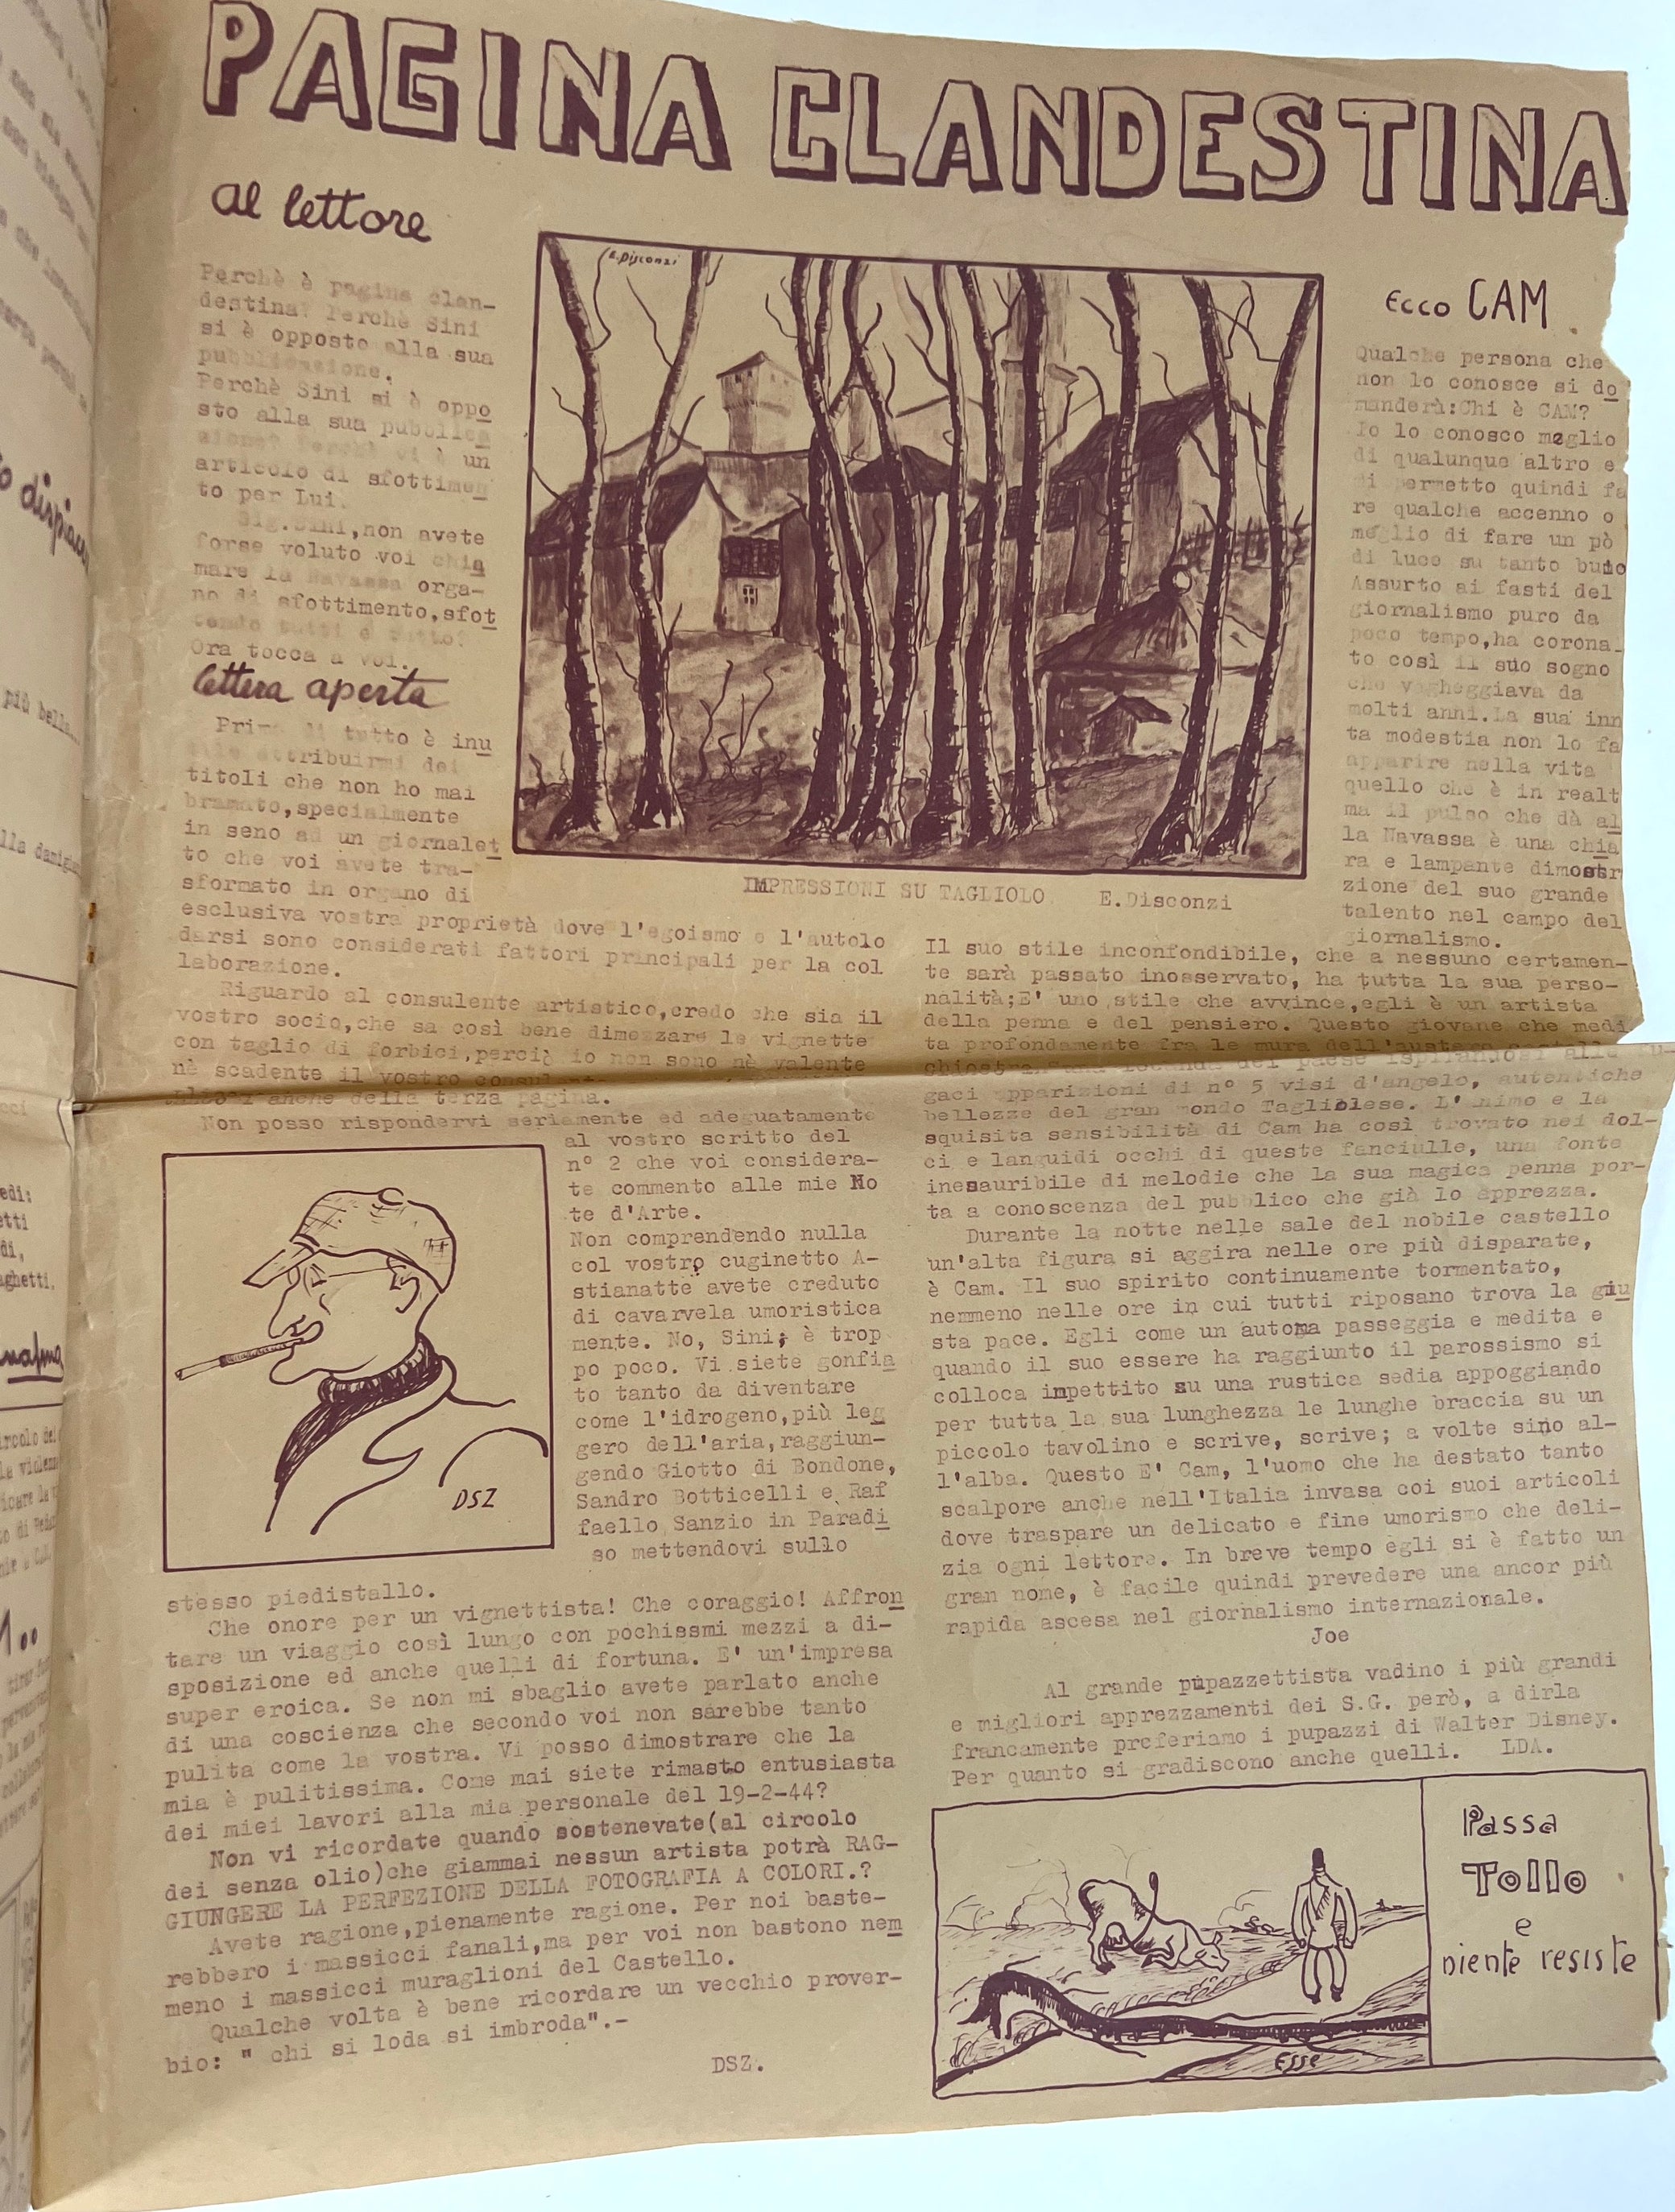 PAGINA CLANDESTINA
al lettore
Perchè è pagina clan-
destina? Perchè Sini
si è opposto alla sua
pubblicazione.
Perchè Sini si è oppo
sto alla sua pubblica
zione? Perchè vi è un
articolo di sfottimen
to per Lui.
Sig.Sini,non avete
forse voluto voi chia
mare la Navassa orga-
no di sfottimento,sfot
tendo tutti e tutto?
Ora tocca a voi.
lettera aperta
Prima di tutto è inu
tile attribuirmi dei
titoli che non ho mai
bramato,specialmente
in seno ad un giornalet
to che voi avete tra-
sformato in organo di
esclusiva vostra proprietà dove l'egoismo e l'autolo
darsi sono considerati fattori principali per la col
laborazione.
Riguardo al consulente artistico,credo che sia il
vostro socio,che sa così bene dimezzare le vignette
con taglio di forbici,perciò io non sono nè valente
nè scadente il vostro
anche della terza pagina.
Non posso rispondervi seriamente ed adeguatamente
al vostro scritto del
n° 2 che voi considera-
te commento alle mie No
te d'Arte.
Non comprendendo nulla
col vostro cuginetto A-
stianatte avete creduto
di cavarvela umoristica
mente. No, Sini; è trop
po poco. Vi siete gonfia
to tanto da diventare
come l'idrogeno,più leg
gero dell'aria,raggiun-
gendo Giotto di Bondone,
Sandro Botticelli e Raf
faello Sanzio in Paradi
so mettendovi sullo
stesso piedistallo.
Che onore per un vignettista! Che coraggio! Affron
tare un viaggio così lungo con pochissmi mezzi a di-
sposizione ed anche quelli di fortuna. E' un'impresa
super eroica. Se non mi sbaglio avete parlato anche
di una coscienza che secondo voi non sarebbe tanto
pulita come la vostra. Vi posso dimostrare che la
mia è pulitissima. Come mai siete rimasto entusiasta
dei miei lavori alla mia personale del 19-2-44?
Non vi ricordate quando sostenevate(al circolo
dei senza olio)che giammai nessun artista potrà RAG-
GIUNGERE LA PERFEZIONE DELLA FOTOGRAFIA A COLORI.?
Avete ragione,pienamente ragione. Per noi baste-
rebbero i massicci fanali,ma per voi non bastono nem
meno i massicci muraglioni del Castello.
Qualche volta è bene ricordare un vecchio prover-
bio: " chi si loda si imbroda".-
DSZ.
DSZ
E.Disconzi
IMPRESSIONI SU TAGLIOLO E.Disconzi
Ecco CAM
Qualche persona che
non lo conosce si do
manderà:Chi è CAM?
Io lo conosco meglio
di qualunque altro e
mi permetto quindi fa
re qualche accenno o
meglio di fare un pò
di luce su tanto buio
Assurto ai fasti del
giornalismo puro da
poco tempo,ha corona-
to così il suo sogno
che vagheggiava da
molti anni.La sua inn
ta modestia non lo fa
apparire nella vita
quello che è in realt
ma il pulso che dà al
la Navassa è una chia
ra e lampante dimostr
zione del suo grande
talento nel campo del
giornalismo.
Il suo stile inconfondibile, che a nessuno certamen-
te sarà passato inosservato, ha tutta la sua perso-
nalità;E' uno stile che avvince,egli è un artista
della penna e del pensiero. Questo giovane che medi
ta profondamente fra le mura dell'austero castello
del paese ispirandosi alle fu-
gaci apparizioni di n° 5 visi d'angelo, autentiche
bellezze del gran mondo Tagliolese. L'animo e la
squisita sensibilità di Cam ha così trovato nei dol-
ci e languidi occhi di queste fanciulle, una fonte
inesauribile di melodie che la sua magica penna por-
ta a conoscenza del pubblico che già lo apprezza.
Durante la notte nelle sale del nobile castello
un'alta figura si aggira nelle ore più disparate,
è Cam. Il suo spirito continuamente tormentato,
nemmeno nelle ore in cui tutti riposano trova la giu
sta pace. Egli come un automa passeggia e medita e
quando il suo essere ha raggiunto il parossismo si
colloca impettito su una rustica sedia appoggiando
per tutta la sua lunghezza le lunghe braccia su un
piccolo tavolino e scrive, scrive; a volte sino al-
l'alba. Questo E' Cam, l'uomo che ha destato tanto
scalpore anche nell'Italia invasa coi suoi articoli
dove traspare un delicato e fine umorismo che deli-
zia ogni lettore. In breve tempo egli si è fatto un
gran nome, è facile quindi prevedere una ancor più
rapida ascesa nel giornalismo internazionale.
Joe
Al grande pupazzettista vadino i più grandi
e migliori apprezzamenti dei S.G. però, a dirla
francamente preferiamo i pupazzi di Walter Disney.
Per quanto si gradiscono anche quelli. LDA.
Esse
Passa
Tollo
e
niente resiste